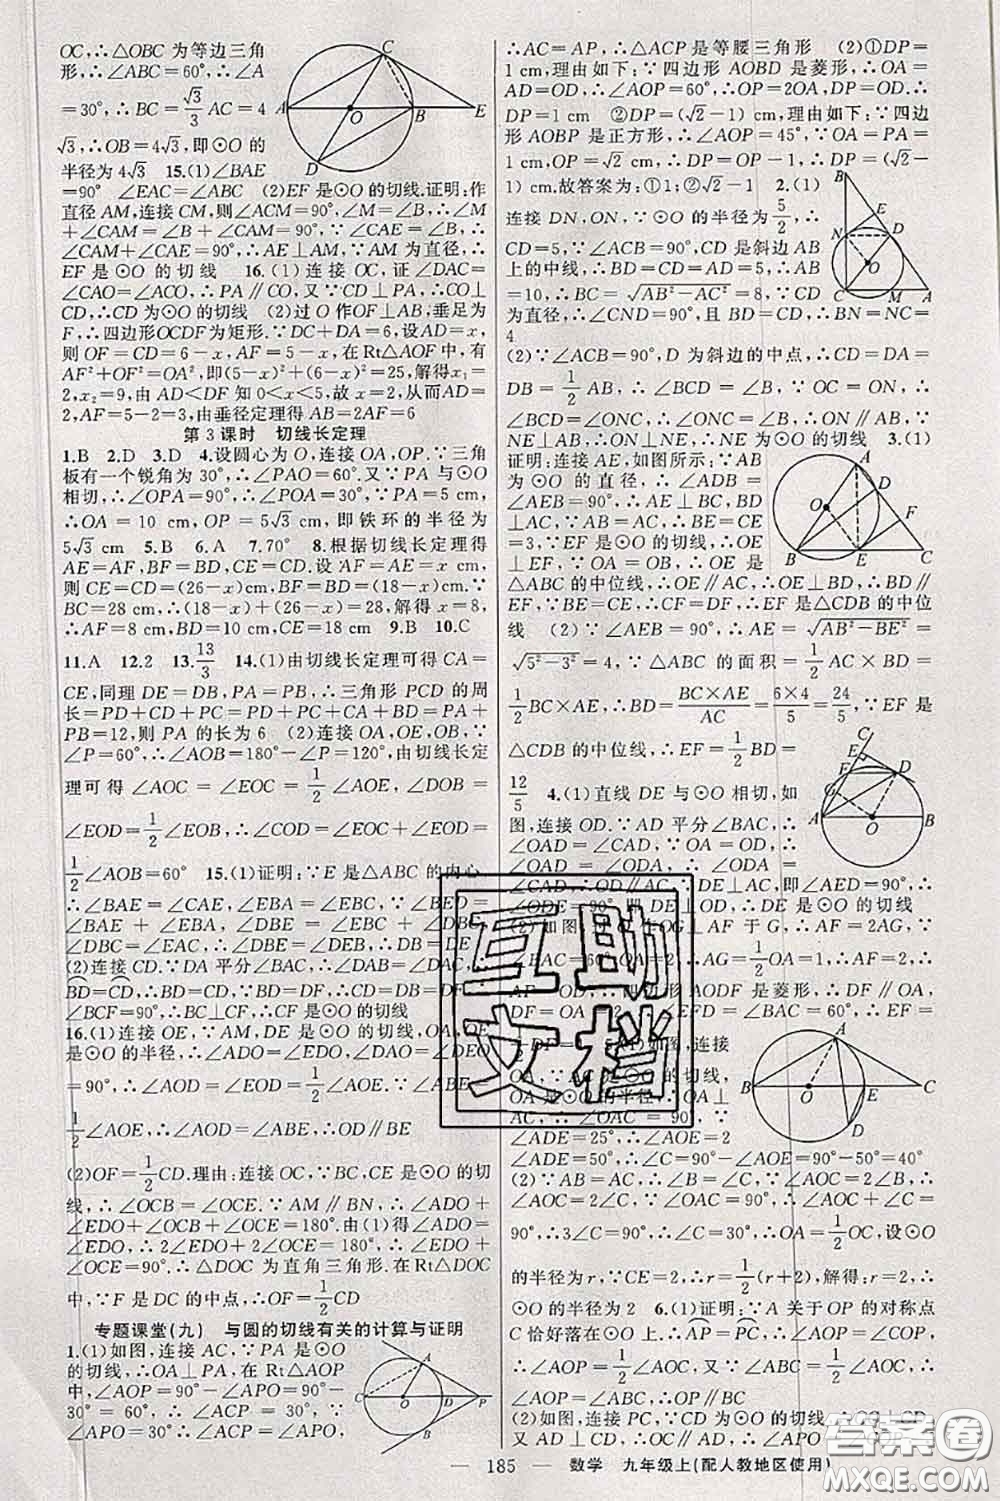 OC,∴△OBC 为等边三角
形,∴∠ABC=60°,∴∠A
=30°,∴BC=√3/3 AC=4
√3,∴OB=4√3,即⊙O 的
半径为 4√3 15.(1)∠BAE
=90° ∠EAC=∠ABC (2)EF 是⊙O 的切线.证明:作
直径 AM,连接 CM,则∠ACM=90°,∠M=∠B,∴∠M
+∠CAM=∠B+∠CAM=90°,∵∠CAE=∠B,∴
∠CAM+∠CAE=90°,∴AE⊥AM,∵AM 为直径,∴
EF 是⊙O 的切线 16.(1)连接 OC,证∠DAC=
∠CAO=∠ACO,∴PA∥CO,又∵CD⊥PA,∴CO⊥
CD,∴CD 为⊙O 的切线 (2)过 O 作 OF⊥AB,垂足为
F,∴四边形 OCDF 为矩形.∵DC+DA=6,设 AD=x,
则 OF=CD=6-x,AF=5-x,在 Rt△AOF 中,有
AF²+OF²=OA²,即(5-x)²+(6-x)²=25,解得 x₁=
2,x₂=9,由 AD<DF 知 0<x<5,故 x=2,从而 AD=
2,AF=5-2=3,由垂径定理得 AB=2AF=6
第 3 课时 切线长定理
1.B 2.D 3.D 4.设圆心为 O,连接 OA,OP.∵三角
板有一个锐角为 30°,∴∠PAO=60°.又∵PA 与⊙O
相切,∴∠OPA=90°,∴∠POA=30°,∵PA=5 cm,
∴OA=10 cm,OP=5√3 cm,即铁环的半径为
5√3 cm 5.B 6.A 7.70° 8.根据切线长定理得
AE=AF,BF=BD,CE=CD.设 AF=AE=x cm,
则 CE=CD=(26-x)cm,BF=BD=(18-x)cm.∵
BC=28 cm,∴(18-x)+(26-x)=28,解得 x=8,
∴AF=8 cm,BD=10 cm,CE=18 cm 9.B 10.C
11.A 12.2 13.13/3 14.(1)由切线长定理可得 CA=
CE,同理 DE=DB,PA=PB,∴三角形 PCD 的周
长=PD+CD+PC=PD+PC+CA+BD=PA+
PB=12,则 PA 的长为 6 (2)连接 OA,OE,OB,∵
∠P=60°,∴∠AOB=180°-∠P=120°,由切线长定
理可得 ∠AOC=∠EOC=1/2∠AOE,∠DOB=
∠EOD=1/2∠EOB,∴∠COD=∠EOC+∠EOD=
1/2∠AOB=60° 15.(1)证明:∵E 是△ABC 的内心,
∴∠BAE=∠CAE,∠EBA=∠EBC,∵∠BED=
∠BAE+∠EBA,∠DBE=∠EBC+∠DBC,
∠DBC=∠EAC,∴∠DBE=∠BED,∴DB=DE
(2)连接 CD.∵DA 平分∠BAC,∴∠DAB=∠DAC,∴
BD=CD,∴BD=CD,∵BD=DF,∴CD=DB=DF,∴
∠BCF=90°,∴BC⊥CF,∴CF 是⊙O 的切线
16.(1)连接 OE,∵AM,DE 是⊙O 的切线,OA,OE
是⊙O 的半径,∴∠ADO=∠EDO,∠DAO=∠DEO
=90°,∴∠AOD=∠EOD=1/2∠AOE,∵∠ABE=
1/2∠AOE,∴∠AOD=∠ABE,∴OD∥BE
(2)OF=1/2CD.理由:连接 OC,∵BC,CE 是⊙O 的切
线,∴∠OCB=∠OCE.∵AM∥BN,∴∠ADO+
∠EDO+∠OCB+∠OCE=180°.由(1)得∠ADO=
∠EDO,∴2∠EDO+2∠OCE=180°,∴∠EDO+
∠OCE=90°.∴△DOC 为直角三角形.在 Rt△DOC
中,∵F 是 DC 的中点,∴OF=1/2CD
专题课堂(九) 与圆的切线有关的计算与证明
1.(1)如图,连接 AC,∵PA 是⊙O
的切线,∴OA⊥PA,在 Rt△AOP
中,∠AOP=90°-∠APO=90°-
30°=60°,∴∠ACP=30°,∵
∠APO=30°,∴∠ACP=∠APO,
∴AC=AP,∴△ACP 是等腰三角形 (2)①DP=
1 cm,理由如下:∵四边形 AOBD 是菱形,∴OA=
AD=OD,∴∠AOP=60°,∴OP=2OA,DP=OD.∴
DP=1 cm ②DP=(√2-1)cm,理由如下:∵四边
形 AOBP 是正方形,∴∠AOP=45°,∵OA=PA=
1 cm,OP=√2 cm,∴DP=OP-OD,∴DP=(√2-
1)cm.故答案为:①1;②√2-1 2.(1)
连接 DN,ON,∵⊙O 的半径为5/2,∴
CD=5,∵∠ACB=90°,CD 是斜边 AB
上的中线,∴BD=CD=AD=5,∴AB
=10,∴BC=√AB²-AC²=8,∵CD
为直径,∴∠CND=90°,且 BD=CD,∴BN=NC=
4
(2)∵∠ACB=90°,D 为斜边的中点,∴CD=DA=
DB=1/2AB,∴∠BCD=∠B,∵OC=ON,∴
∠BCD=∠ONC,∴∠ONC=∠B,∴ON∥AB,∵
NE⊥AB,∴ON⊥NE,∴NE 为⊙O 的切线 3.(1)
证明:连接 AE,如图所示:∵AB
为⊙O 的直径,∴∠ADB=
∠AEB=90°,∴AE⊥BC,BD⊥
AC,∵AB=AC,∴BE=CE
=3,∵EF 是⊙O 的切线,∴OE
⊥EF,∵OA=OB,∴OE 是
△ABC 的中位线,∴OE∥AC,∴OE⊥BD,∴BD∥
EF,∵BE=CE,∴CF=DF,∴EF 是△CDB 的中位
线 (2)∵∠AEB=90°,∴AE=√AB²-BE²=
√5²-3²=4,∵△ABC 的面积=1/2AC×BD=
1/2BC×AE,∴BD=BC×AE/AC=6×4/5=24/5,∵EF 是
△CDB 的中位线,∴EF=1/2BD=
12/5 4.(1)直线 DE 与⊙O 相切,如
图,连接 OD.∵AD 平分∠BAC,∴
∠OAD=∠CAD,∵OA=OD,∴
∠OAD=∠ODA,∴∠ODA=
∠CAD,∴OD∥AC,∵DE⊥AC,即∠AED=90°,∴
∠ODE=90°,即 DE⊥OD,∴DE 是⊙O 的切线
∠BAC=60°,OA=2,∴AG=1/2OA=1,∴AF=2,
四边形 AODF 是菱形,∴DF∥OA,
DF=OA=2,∴∠EFD=∠BAC=60°,∴EF=
∠ADE=25°,∴∠AOE=2
∠ADE=50°,∴∠C=90°-∠AOE=90°-50°=40°
(2)∵AB=AC,∴∠B=∠C,∵∠AOC=2∠B,∴
∠AOC=2∠C,∵∠OAC=90°,∴∠AOC+∠C=
90°,∴3∠C=90°,∴∠C=30°,∴OA=1/2OC,设⊙O
的半径为 r,∵CE=2,∴r=1/2(r+2),解得:r=2,∴
⊙O 的半径为 2 6.(1)证明:∵A 关于 OP 的对称点
C 恰好落在⊙O 上,∴AP=PC,∴∠AOP=∠COP,∴
∠AOP=1/2∠AOC,又∵∠ABC=1/2∠AOC,∴
∠AOP=∠ABC,∴OP∥BC
(2)如图,连接 PC,∵CD 为⊙O 的切线,∴OC⊥CD,
又 AD⊥CD,∴OC∥AD,∴∠APO=∠COP,∵
— 185 — 数学 九年级上(配人教地区使用)
互助
文档
答案圈
MXQE.COM